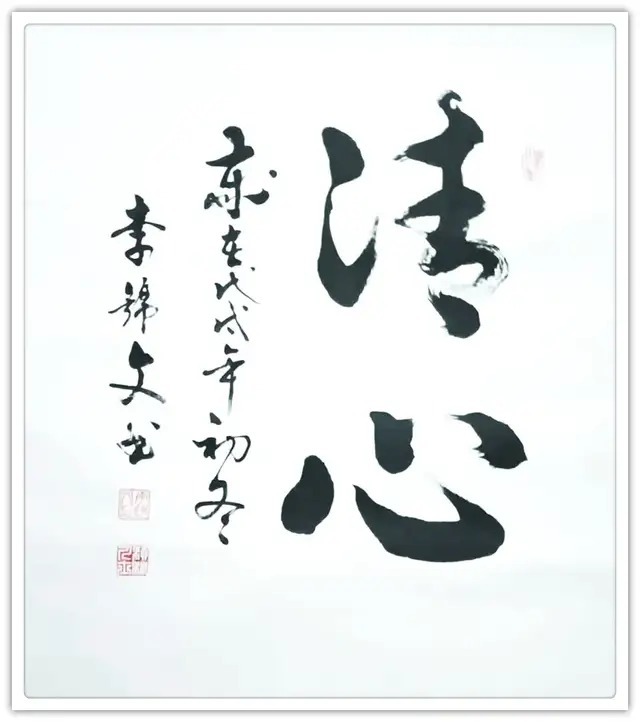 清心
歲在戊戌年初冬
李文书